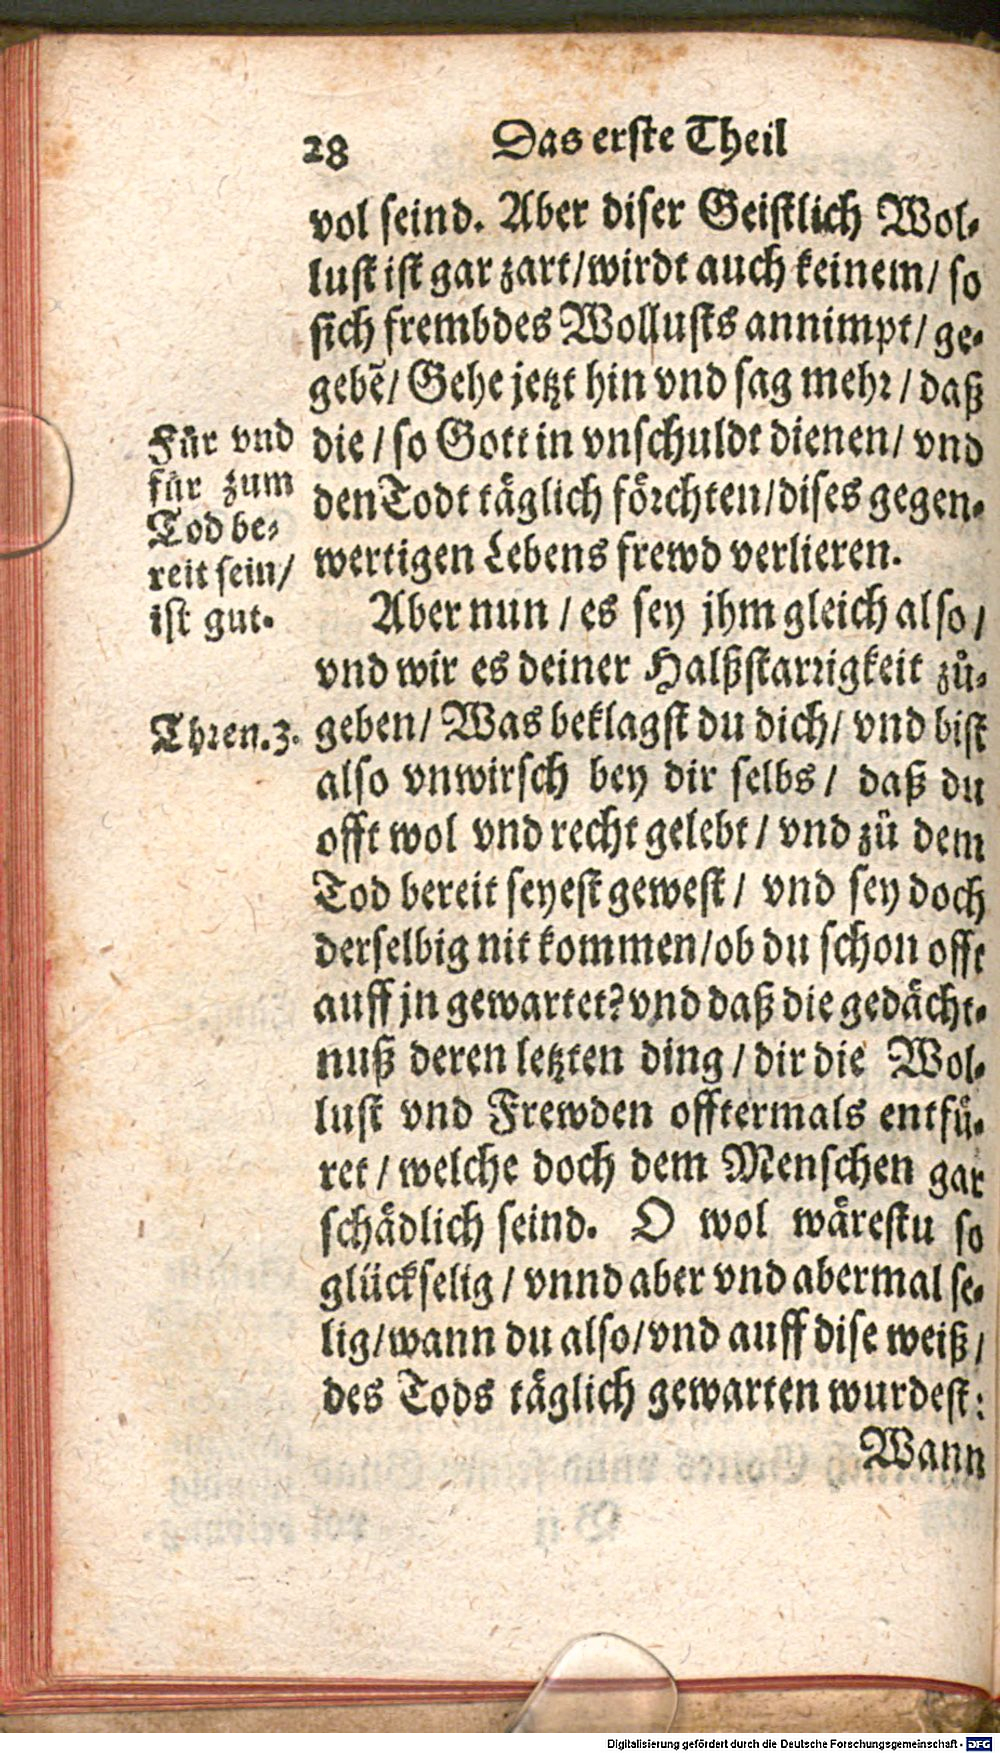 28 Das erste Theil
vol seind. Aber diser Geistlich Wol-
lust ist gar zart/wirdt auch keinem/ so
sich frembdes Wollusts annimpt/ ge-
gebē/ Gehe jetzt hin vnd sag mehr/ daß
die/ so Gott in vnschuldt dienen/ vnd
den Todt täglich förchten/dises gegen-
wertigen Lebens frewd verlieren.
Für vnd
für zum
Tod be-
reit sein/
ist gut.
Aber nun/ es sey jhm gleich also/
vnd wir es deiner Halßstarrigkeit zů-
geben/ Was beklagst du dich/ vnd bist
Thren.3.
also vnwirsch bey dir selbs/ daß du
offt wol vnd recht gelebt/ vnd zů dem
Tod bereit seyest gewest/ vnd sey doch
derselbig nit kommen/ob du schon offt
auff jn gewartet? vnd daß die gedächt-
nuß deren letzten ding/ dir die Wol-
lust vnd Frewden offtermals entfü-
ret/ welche doch dem Menschen gar
schädlich seind. O wol wärestu so
glückselig/ vnnd aber vnd abermal se-
lig/wann du also/vnd auff dise weiß/
des Tods täglich gewarten wurdest:
Wann
Digitalisierung gefördert durch die Deutsche Forschungsgemeinschaft - DFG